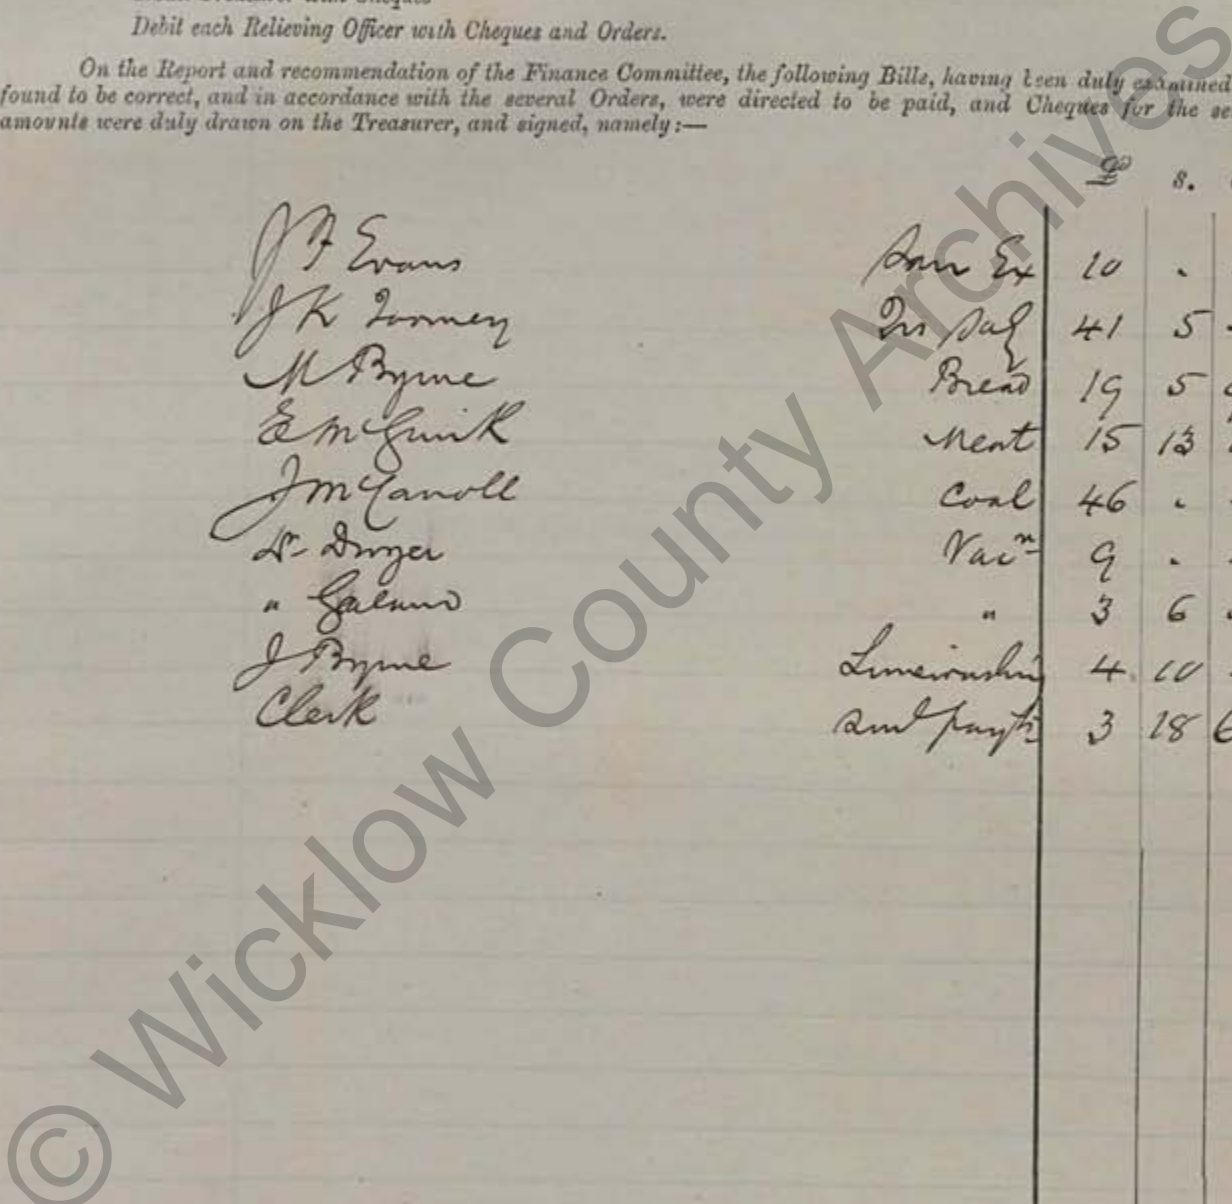 Debit each Relieving Officer with Cheques and Orders.
On the Report and recommendation of the Finance Committee, the following Bills, having been duly examined
found to be correct, and in accordance with the several Orders, were directed to be paid, and Cheques for the se
amounts were duly drawn on the Treasurer, and signed, namely:—
£ s.
J F Evans San Ex 10 .
J K Toomey Qr Saly 41 5
M Byrne Bread 19 5
E McGuirk Meat 15 13
J McCarroll Coal 46 .
Dr Dwyer Vacn 9 .
" " 3 6
J Byrne Limewashing 4 10
Clerk Sml payts 3 18 6
© Wicklow County Archives